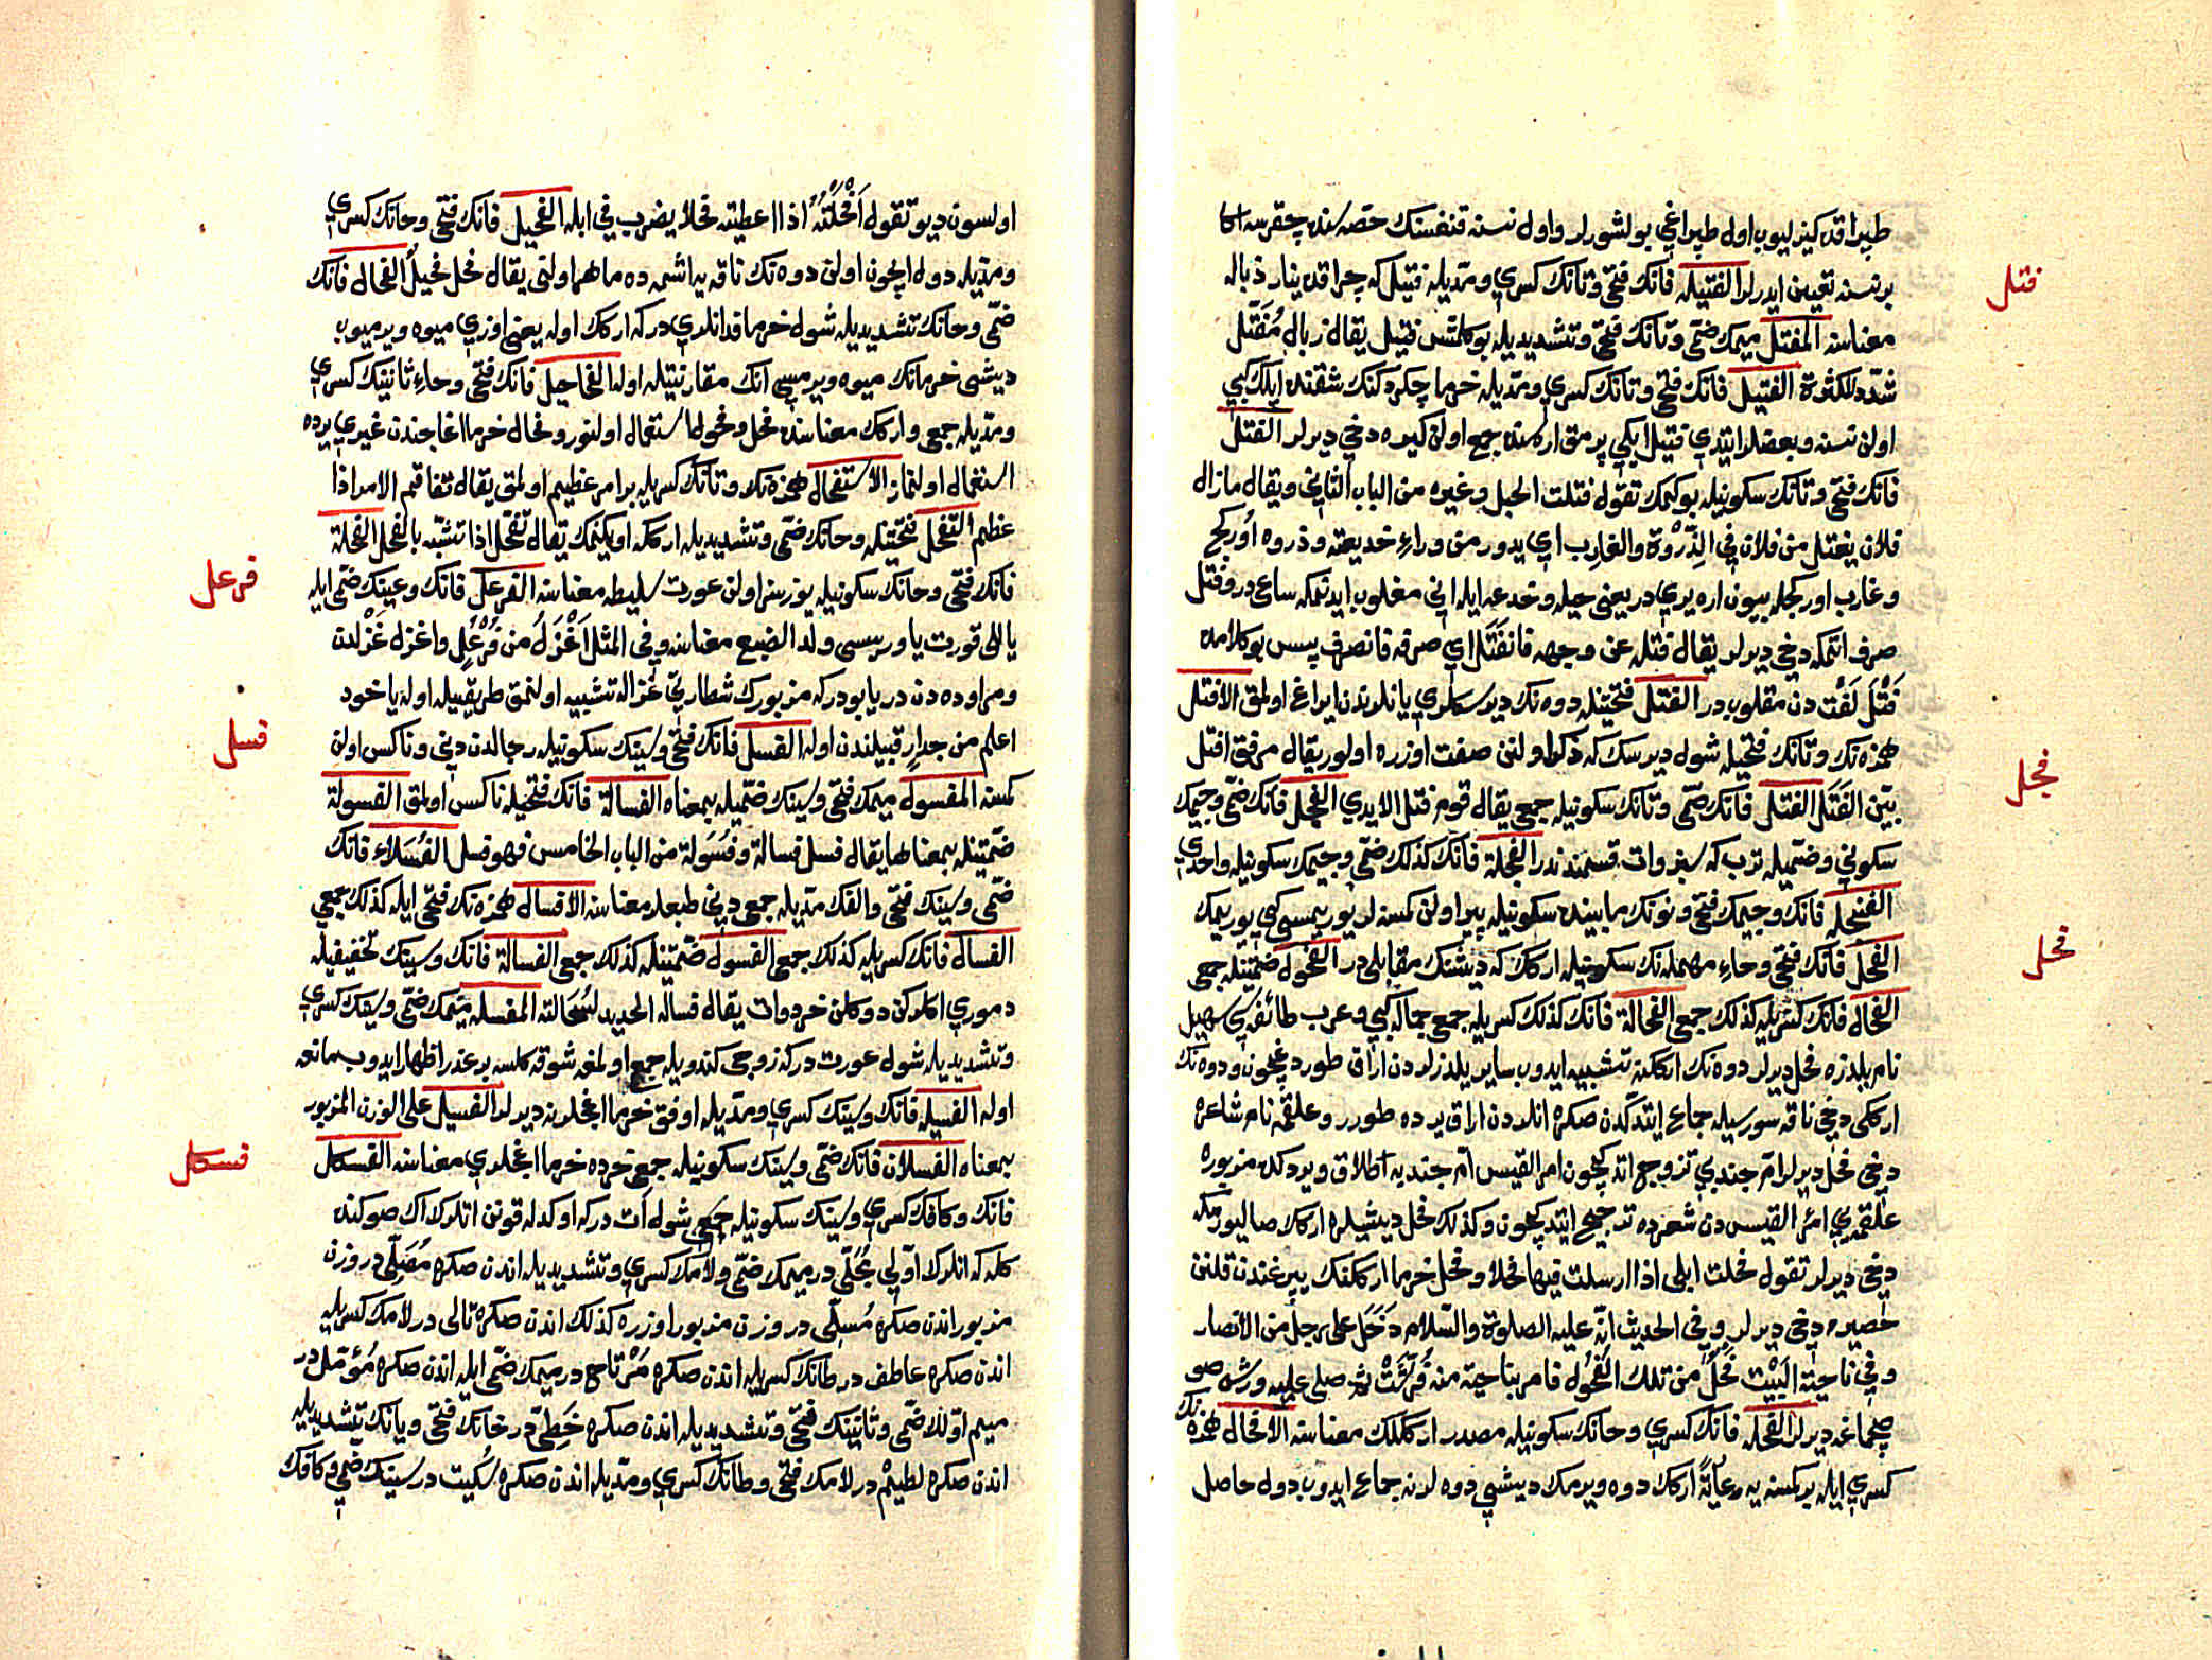 طپراقده كيزليوب اول طپراغي بولشورلر واول نسنه قنغسنك حصه سنده چقرسه اكا
برنسنه تعيين ايدرلر الفتيله فانك فتحي وتانك كسري ومدّيله فتيل كه چراقده ينار ذباله
فتل
معناسنه المفتل ميمك ضمّي وتانك فتحي وتشديديله بوكلمش فتيل يقال ذبال مُفَتّل
شدّد للكثرة الفتيل فانك فتحي وتانك كسري ومدّيله خرما چكردكنك شقنده ايپلك كبي
اولن نسنه وبعضلر ايتدي فتيل ايكي پرمق اره سنده جمع اولن كيره دخي ديرلر الفتل
فانك فتحي وتانك سكونيله بوكمك تقول فتلت الحبل وغيره من الباب الثاني ويقال مازال
فلان يفتل من فلان في الذِّرْوة والغارب اي يدور من وراء خديعته وذروه اوركج
وغارب اوركجله بيون اره يري در يعني حيله وخدعه ايله اني مغلوب ايدتمكه ساعي در وفتل
صرف اتمكه دخي ديرلر يقال فتله عن وجهه فانفَتَل اي صرفه فانصرف پس بو كلامده
فَتْل لَفْت دن مقلوب در الفتل فتحتينله دوه نك ديرسكلري يانلرندن ايراغ اولمق الافتل
همزه نك وتانك فتحيله شول ديرسك كه ذكر اولنن صفت اوزره اولور يقال مرفق افتل
بيّن الفَتَل الفتل فانك ضمّي وتانك سكونيله جمعي يقال قوم فتل الايدي الفجل فانك ضمّي وجيمك
فجل
سكوني وضمّيله ترب كه سبزوات قسمندندر الفجلة فانك كذلك ضمّي وجيمك سكونيله واحدي
الفنجله فانك وجيمك فتحي ونونك مابينده سكونيله پير اولن كمسنه لر يوريمسي كبي يوريمك
الفحل فانك فتحي وحاء مهمله نك سكونيله اركك كه ديشنك مقابلي در الفحول ضمّتينله جمعي
فحل
الفحال فانك كسريله كذلك جمعي الفحالة فانك كذلك كسريله جمعي جماله كبي وعرب طائفه سي سهيل
نام يلدزه فحل ديرلر دوه نك ارككنه تشبيه ايدوب ساير يلدزلردن اراق طوردغيچون ودوه نك
اركي دخي ناقه سوريسيله جماع ايتدكدن صكره انلردن اراق يرده طورر وعلقمه نام شاعره
دخي فحل ديرلر امّ جندبي تزوج اتدكيچون امر القيس امّ جندبه اطلاق ويردكده مزبوره
علقمه يي امر القيسدن شعرده ترجيح ايتدكيچون وكذلك فحل ديشيلره اركك صاليورمكه
دخي ديرلر تقول فحلت ابلي اذا ارسلت فيها فحلا وفحل خرما اركككنك پيرغندن قلنن
حصيره دخي ديرلر وفي الحديث انّه عليه الصلوة والسّلام دَخَل على رجل من الانصار
وفي ناحية البَيْت فَحل من تلك الفحُول فامر بناحية منه فرُشّتْ ثم صلى عليه ورش صو
صچماغه ديرلر الفحله فانك كسري وحانك سكونيله مصدر اركككلك معناسنه الافحال همزه نك
كسري ايله بر كمسنه يه رعايةً اركك دوه ويرمك ديشي دوه لرنه جماع ايدوب دول حاصل
اولسون ديو تقول اَفْحَلْتُهُ اذا اعطيته فحلا يضرب في ابله الفحيل فانك فتحي وحانك كسري
ومدّيله دول ايچون اولن دوه نك ناقه يه اشمه ده ماهر اولني يقال فحل فحيل الفحال فانك
ضمّي وحانك تشديديله شول خرما فدانلري در كه اركك اوله يعني اوزي ميوه ويرميوب
ديشي خرمانك ميوه ويرمسي انك مقارنتيله اوله الفحاحيل فانك فتحي وحاء ثانينك كسري
ومدّيله جمعي واركك معناسنده فحل وفحول استعمال اولنور وفحال خرما اغاجندن غيري يرده
استعمال اولنماز الاستفحال همزه نك وتانك كسريله برامر عظيم اولمق يقال تفاقم الامر اذا
عظم التفحل فتحتينله وحانك ضمّي وتشديديله اركه اويكنمك يقال تفحّل اذا تشبّه بالفحل الفحلة
فانك فتحي وحانك سكونيله يوزسز اولن عورت سليطه معناسنه الفرعل فانك وعينك ضمّي ايله
فرعل
يالي قورت ياوريسي ولد الضبع معناسنه وفي المثل اَغْزَلُ من فُرْعُلٍ واغزل غَزْلدن
ومراوده دن در يا بودر كه مزبورك شطاريّ غزاله تشبيه اولنمق طريقيله اوله يا خود
اعلم من جدارٍ قبيلندن اوله الفسل فانك فتحي وسينك سكونيله رجالدن دني وناكس اولن
فسل
كمسنه المفسول ميمك فتحي وسينك ضمّيله بمعناه الفسالة فانك فتحيله ناكس اولمق الفسولة
ضمّتينله بمعناها يقال فسل فسالة وفُسُولة من الباب الخامس فهو فسل الفُسَلاء فانك
ضمّي وسينك فتحي والفك مدّيله جمعي دني طبعلر معناسنه الافسال همزه نك فتحي ايله كذلك جمعي
الفسال فانك كسريله كذلك جمعي الفسول ضمّتينله كذلك جمعي الفسالة فانك وسينك تخفيفيله
دموري اكلركن دوكلن خردوات يقال فسالة الحديد لسُحَالته المفسله ميمك ضمّي وسينك كسري
وتشديديله شول عورت در كه زوجي كندويله جمع اولمغه شوقه كلسه بر عذر اظهار ايدوب مانعه
اوله الفسيله فانك وسينك كسري ومدّيله اوفق خرما اغجلرينه ديرلر الفسيل على الوزن المزبور
بمعناه الفسلان فانك ضمّي وسينك سكونيله جمعي خرده خرما اغجلري معناسنه الفسكل
فسكل
فانك وكافك كسري وسينك سكونيله جمعي شول ات در كه اوكدله قونن اتلرك الك صوكنده
كله كه انلرك اوّلي مُجَلّي در ميمك ضمّي ولامك كسري وتشديديله اندن صكره مُصَلّي در وزن
مزبور اندن صكره مُسلّي در وزن مزبور اوزره كذلك اندن صكره تالي در لامك كسريله
اندن صكره عاطف در طانك كسريله اندن صكره مُرْتاح در ميمك ضمّي ايله اندن صكره مُؤمّل در
ميم اوّلك ضمّي وثانينك فتحي وتشديديله اندن صكره حَظِيّ در حانك فتحي ويانك تشديديله
اندن صكره لطيم در لامك فتحي وطانك كسري ومدّيله اندن صكره سُكيت در سينك ضمّي وكافك